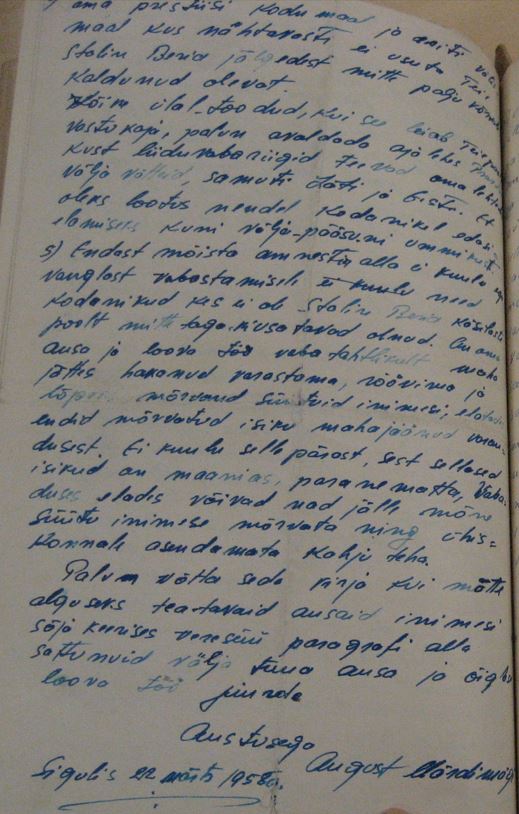 oma prestiisi kodumaal ja eriti väl
maal kus nähtavasti ei usuta Teie
Stalin Beria jälgedest mitte palju kõrva
kaldunud olevat.
Võim ülal-toodud, kui see leiab Teie
vastukaja, palun avaldada ajalehes
kust liiduvabariigid teevad oma lehtede
välja võtteid, samuti Läti ja Eesti. Et
oleks lootus nendel kodanikel edasi
elamiseks kuni välja-pääsuni ummikust
5) Endast mõista amnestia alla ei kuulu ega
vanglast vabastamisele ei kuulu need
kodanikud kes ei ole Stalini Beria käsilaste
poolt mitte taga-kiusatavad olnud. On oma
ausa ja loova töö vabatahtlikult maha
jättes hakanud varastama, röövima ja
mõrvanud süütuid inimesi, elatades
endid mõrvatud isiku mahajäänud varan-
dusest. Ei kuulu selle pärast, sest sellased
isikud on maanias, paranematta, Vaba-
duses elades võivad nad jälle mõne
süütu inimese mõrvata ning ühis=
konnale asendamata kahju teha.
Palun võtta seda kirja kui mõtte
alguseks teatavaid ausaid inimesi
sõja keerises veresüü paragrahvi alla
sattunuid välja tuua ausa ja õiglase
loova töö juurde
Austusega
Sigulis 22 märts 1958a. August